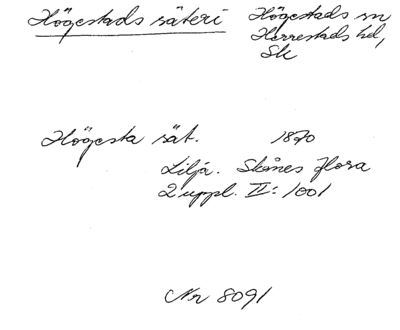 Högestads säteri Högestads sn
Herrestads hd,
Sk
Högesta sät. 1870
Lilja. Skånes flora
2 uppl. II: 1001
Nr 8091